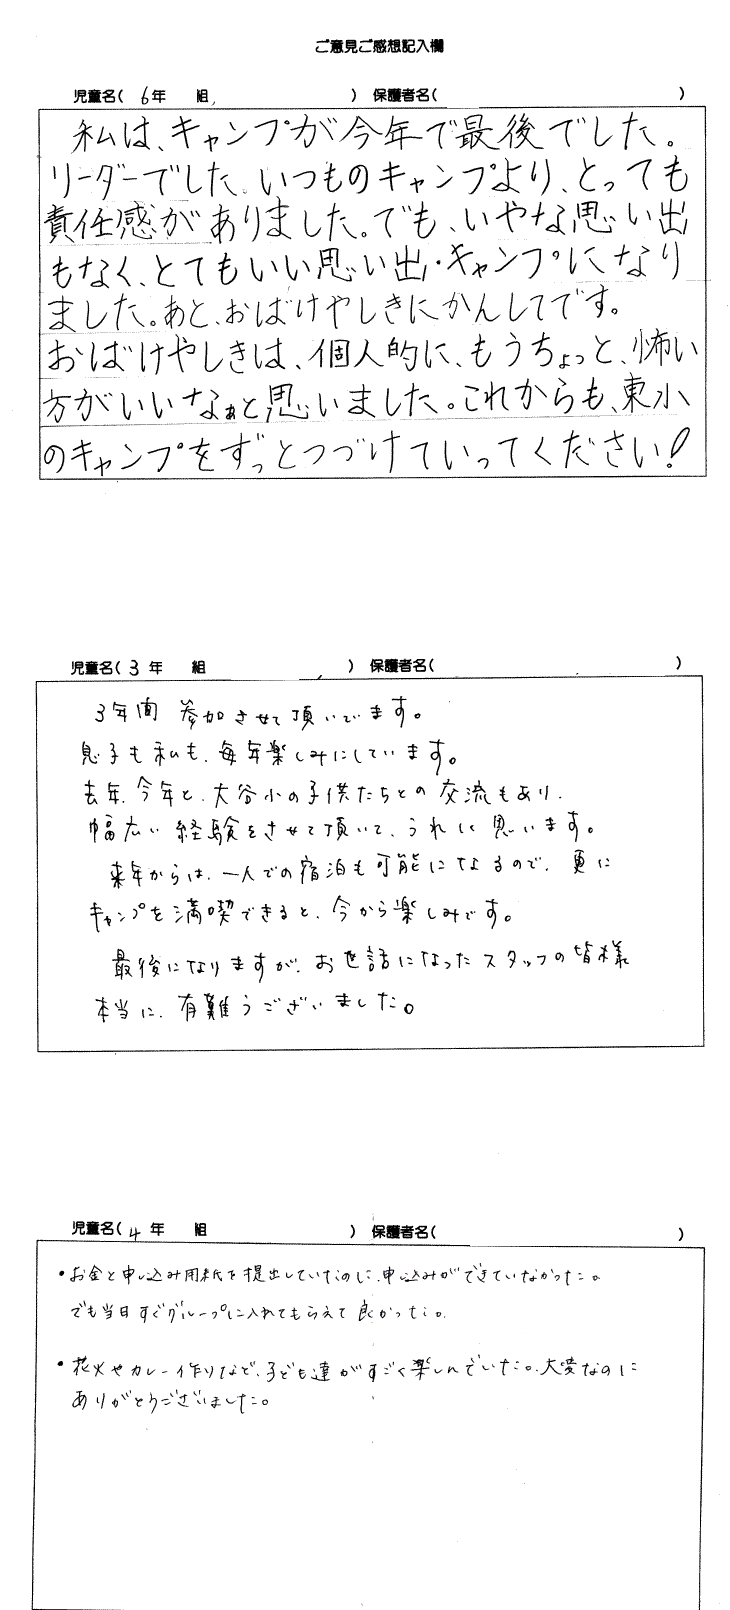 ご意見ご感想記入欄
児童名( 6年 組 ) 保護者名( )
私は、キャンプが今年で最後でした。
リーダーでした、いつものキャンプより、とっても
責任感がありました。でも、いやな思い出
もなく、とてもいい思い出・キャンプになり
ました。あと、おばけやしきにかんしてです。
おばけやしきは、個人的に、もうちょっと、怖い
方がいいなぁと思いました。これからも、東小
のキャンプをずっとつづけていってください!
児童名( 3年 組 ) 保護者名( )
3年間 参加させて頂いでます。
息子も私も、毎年楽しみにしています。
去年、今年と、大谷小の子供たちとの交流もあり、
幅広い経験をさせて頂いて、うれしく思います。
来年からは、一人での宿泊も可能になるので、更に
キャンプを満喫できると、今から楽しみです。
最後になりますが、お世話になったスタッフの皆様
本当に、有難うございました。
児童名( 4年 組 ) 保護者名( )
・お金と申し込み用紙を提出していたのに、申し込みができていなかった。
でも当日すぐグループに入れてもらえて良かった。
・花火やカレー作りなど、子ども達がすごく楽しんでいた。大変なのに
ありがとうございました。